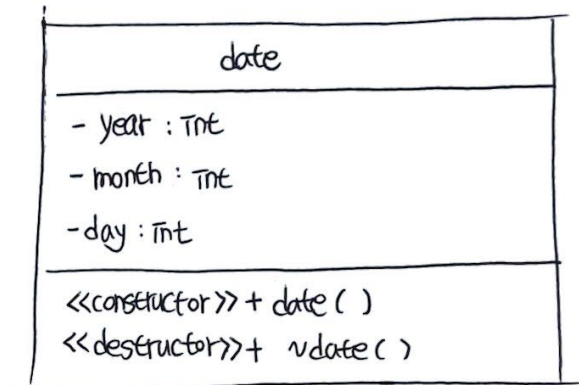 date
- year : int
- month : int
- day : int
<<constructor>> + date ( )
<<destructor>> + ~date ( )